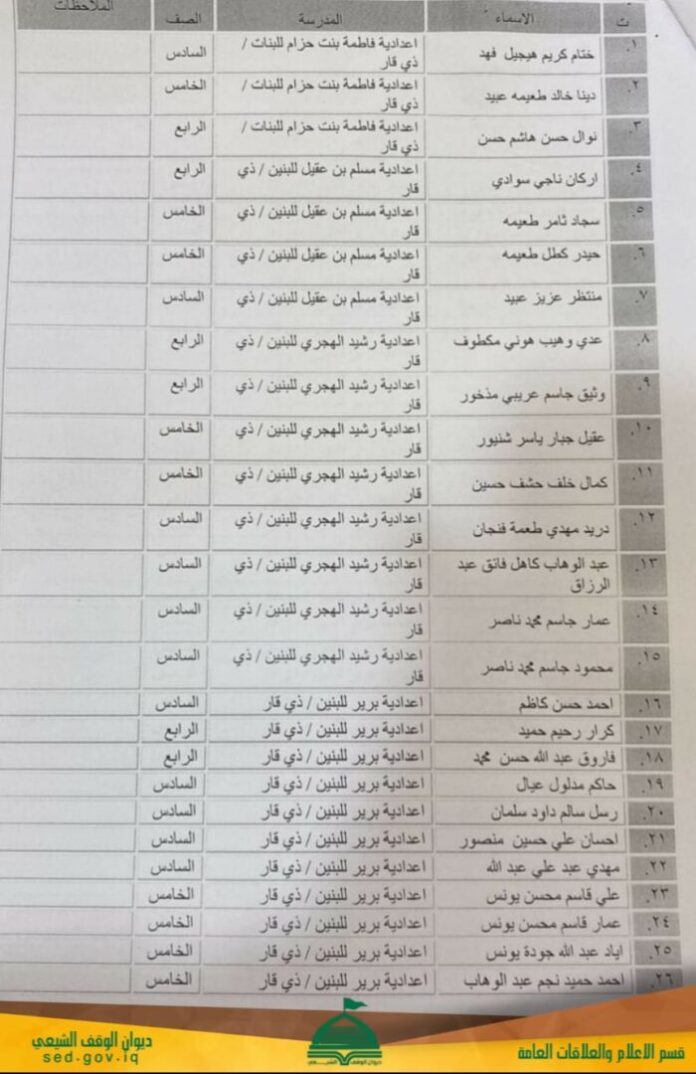 ت الاسماء المدرسة الصف الملاحظات
١. ختام كريم هيجيل فهد اعدادية فاطمة بنت حزام للبنات / السادس
ذي قار
٢. دينا خالد طعيمه عبيد اعدادية فاطمة بنت حزام للبنات / الخامس
ذي قار
٣. نوال حسن هاشم حسن اعدادية فاطمة بنت حزام للبنات / الرابع
ذي قار
٤. اركان ناجي سوادي اعدادية مسلم بن عقيل للبنين / ذي الرابع
قار
٥. سجاد ثامر طعيمه اعدادية مسلم بن عقيل للبنين / ذي الخامس
قار
٦. حيدر كطل طعيمه اعدادية مسلم بن عقيل للبنين / ذي الخامس
قار
٧. منتظر عزيز عبيد اعدادية مسلم بن عقيل للبنين / ذي السادس
قار
٨. عدي وهيب هوني مكطوف اعدادية رشيد الهجري للبنين / ذي الرابع
قار
٩. وثيق جاسم عريبي مذخور اعدادية رشيد الهجري للبنين / ذي الرابع
قار
١٠. عقيل جبار ياسر شنيور اعدادية رشيد الهجري للبنين / ذي الخامس
قار
١١. كمال خلف حشف حسين اعدادية رشيد الهجري للبنين / ذي الخامس
قار
١٢. دريد مهدي طعمة فنجان اعدادية رشيد الهجري للبنين / ذي السادس
قار
١٣. عبد الوهاب كاهل فائق عبد اعدادية رشيد الهجري للبنين / ذي السادس
الرزاق قار
١٤. عمار جاسم محمد ناصر اعدادية رشيد الهجري للبنين / ذي السادس
قار
١٥. محمود جاسم محمد ناصر اعدادية رشيد الهجري للبنين / ذي السادس
قار
١٦. احمد حسن كاظم اعدادية برير للبنين / ذي قار السادس
١٧. كرار رحيم حميد اعدادية برير للبنين / ذي قار الرابع
١٨. فاروق عبد الله حسن محمد اعدادية برير للبنين / ذي قار الرابع
١٩. حاكم مدلول عيال اعدادية برير للبنين / ذي قار السادس
٢٠. رسل سالم داود سلمان اعدادية برير للبنين / ذي قار السادس
٢١. احسان علي حسين منصور اعدادية برير للبنين / ذي قار السادس
٢٢. مهدي عبد علي عبد الله اعدادية برير للبنين / ذي قار السادس
٢٣. علي قاسم محسن يونس اعدادية برير للبنين / ذي قار الخامس
٢٤. عمار قاسم محسن يونس اعدادية برير للبنين / ذي قار الخامس
٢٥. اياد عبد الله جودة يونس اعدادية برير للبنين / ذي قار الخامس
٢٦. احمد حميد نجم عبد الوهاب اعدادية برير للبنين / ذي قار الخامس
قسم الاعلام والعلاقات العامة
ديوان الوقف الشيعي
ديوان الوقف الشيعي
sed.gov.iq